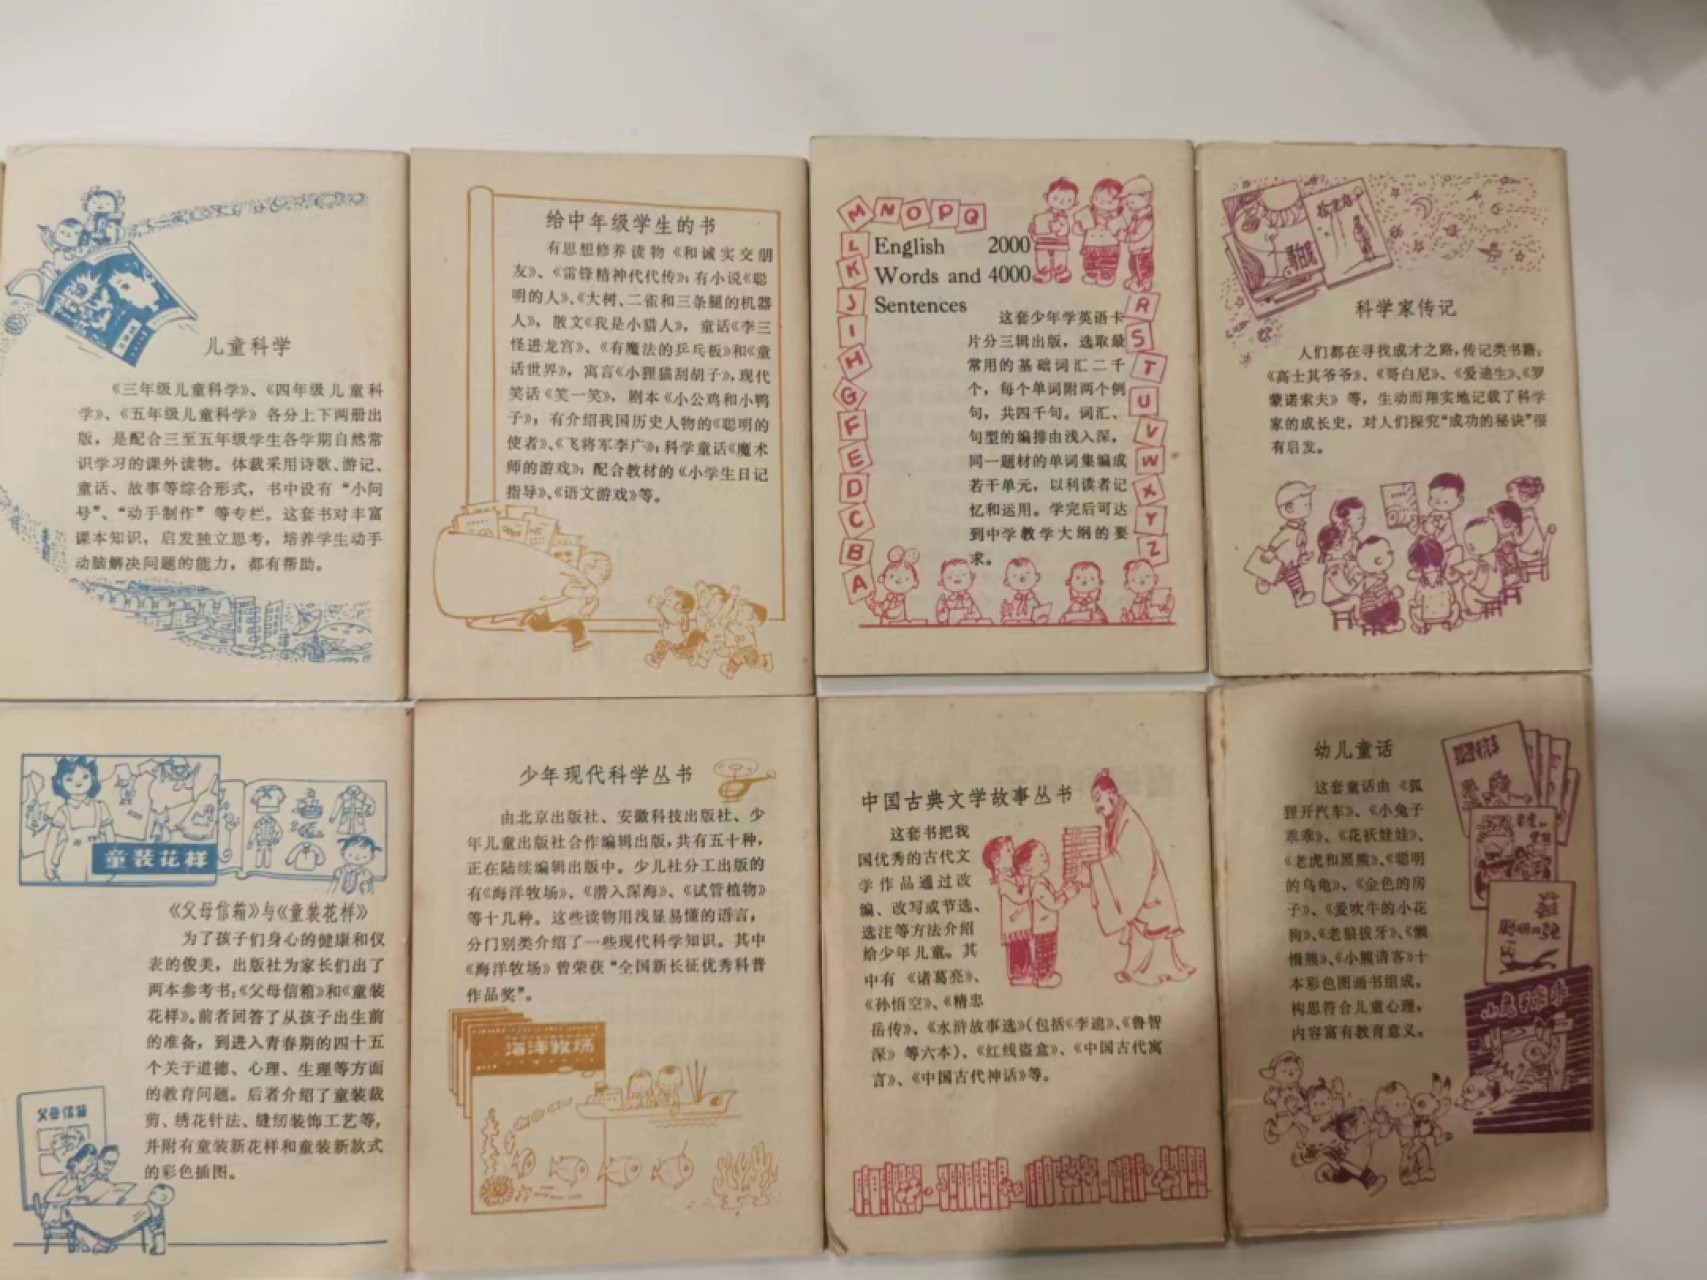 儿童科学
《三年级儿童科学》、《四年级儿童科
学》、《五年级儿童科学》各分上下两册出
版，是配合三至五年级学生各学期自然常
识学习的课外读物。体裁采用诗歌、游记、
童话、故事等综合形式，书中设有“小问
号”、“动手制作”等专栏。这套书对丰富
课本知识，启发独立思考，培养学生动手
动脑解决问题的能力，都有帮助。
给中年级学生的书
有思想修养读物《和诚实交朋
友》、《雷锋精神代代传》；有小说《聪
明的人》、《大树、二雀和三条腿的机器
人》，散文《我是小猎人》，童话《李三
怪进龙宫》、《有魔法的乒乓板》和《童
话世界》，寓言《小狸猫刮胡子》，现代
笑话《笑一笑》，剧本《小公鸡和小鸭
子》；有介绍我国历史人物的《聪明的
使者》、《飞将军李广》；科学童话《魔术
师的游戏》；配合教材的《小学生日记
指导》、《语文游戏》等。
M N O P Q
L
K
J
I
H
G
F
E
D
C
B
A
R
S
T
U
V
W
X
Y
Z
English 2000
Words and 4000
Sentences
这套少年学英语卡
片分三辑出版，选取最
常用的基础词汇二千
个，每个单词附两个例
句，共四千句。词汇、
句型的编排由浅入深，
同一题材的单词集编成
若干单元，以利读者记
忆和运用。学完后可达
到中学教学大纲的要
求。
哥白尼
科学家传记
人们都在寻找成才之路，传记类书籍；
《高士其爷爷》、《哥白尼》、《爱迪生》、《罗
蒙诺索夫》等，生动而翔实地记载了科学
家的成长史，对人们探究“成功的秘诀”很
有启发。
童装花样
《父母信箱》与《童装花样》
为了孩子们身心的健康和仪
表的俊美，出版社为家长们出了
两本参考书：《父母信箱》和《童装
花样》。前者回答了从孩子出生前
的准备，到进入青春期的四十五
个关于道德、心理、生理等方面
的教育问题。后者介绍了童装裁
剪、绣花针法、缝纫装饰工艺等，
并附有童装新花样和童装新款式
的彩色插图。
父母信箱
少年现代科学丛书
由北京出版社、安徽科技出版社、少
年儿童出版社合作编辑出版，共有五十种，
正在陆续编辑出版中。少儿社分工出版的
有《海洋牧场》、《潜入深海》、《试管植物》
等十几种。这些读物用浅显易懂的语言，
分门别类介绍了一些现代科学知识。其中
《海洋牧场》曾荣获“全国新长征优秀科普
作品奖”。
海洋牧场
中国古典文学故事丛书
这套书把我
国优秀的古代文
学作品通过改
编、改写或节选、
选注等方法介绍
给少年儿童。其
中有《诸葛亮》、
《孙悟空》、《精忠
岳传》、《水浒故事选》（包括《李逵》、《鲁智
深》等六本）、《红线盗盒》、《中国古代寓
言》、《中国古代神话》等。
幼儿童话
这套童话由《狐
狸开汽车》、《小兔子
乖乖》、《花袄娃娃》、
《老虎和黑熊》、《聪明
的乌龟》、《金色的房
子》、《爱吹牛的小花
狗》、《老狼拔牙》、《懒
惰熊》、《小熊请客》十
本彩色图画书组成。
构思符合儿童心理，
内容富有教育意义。